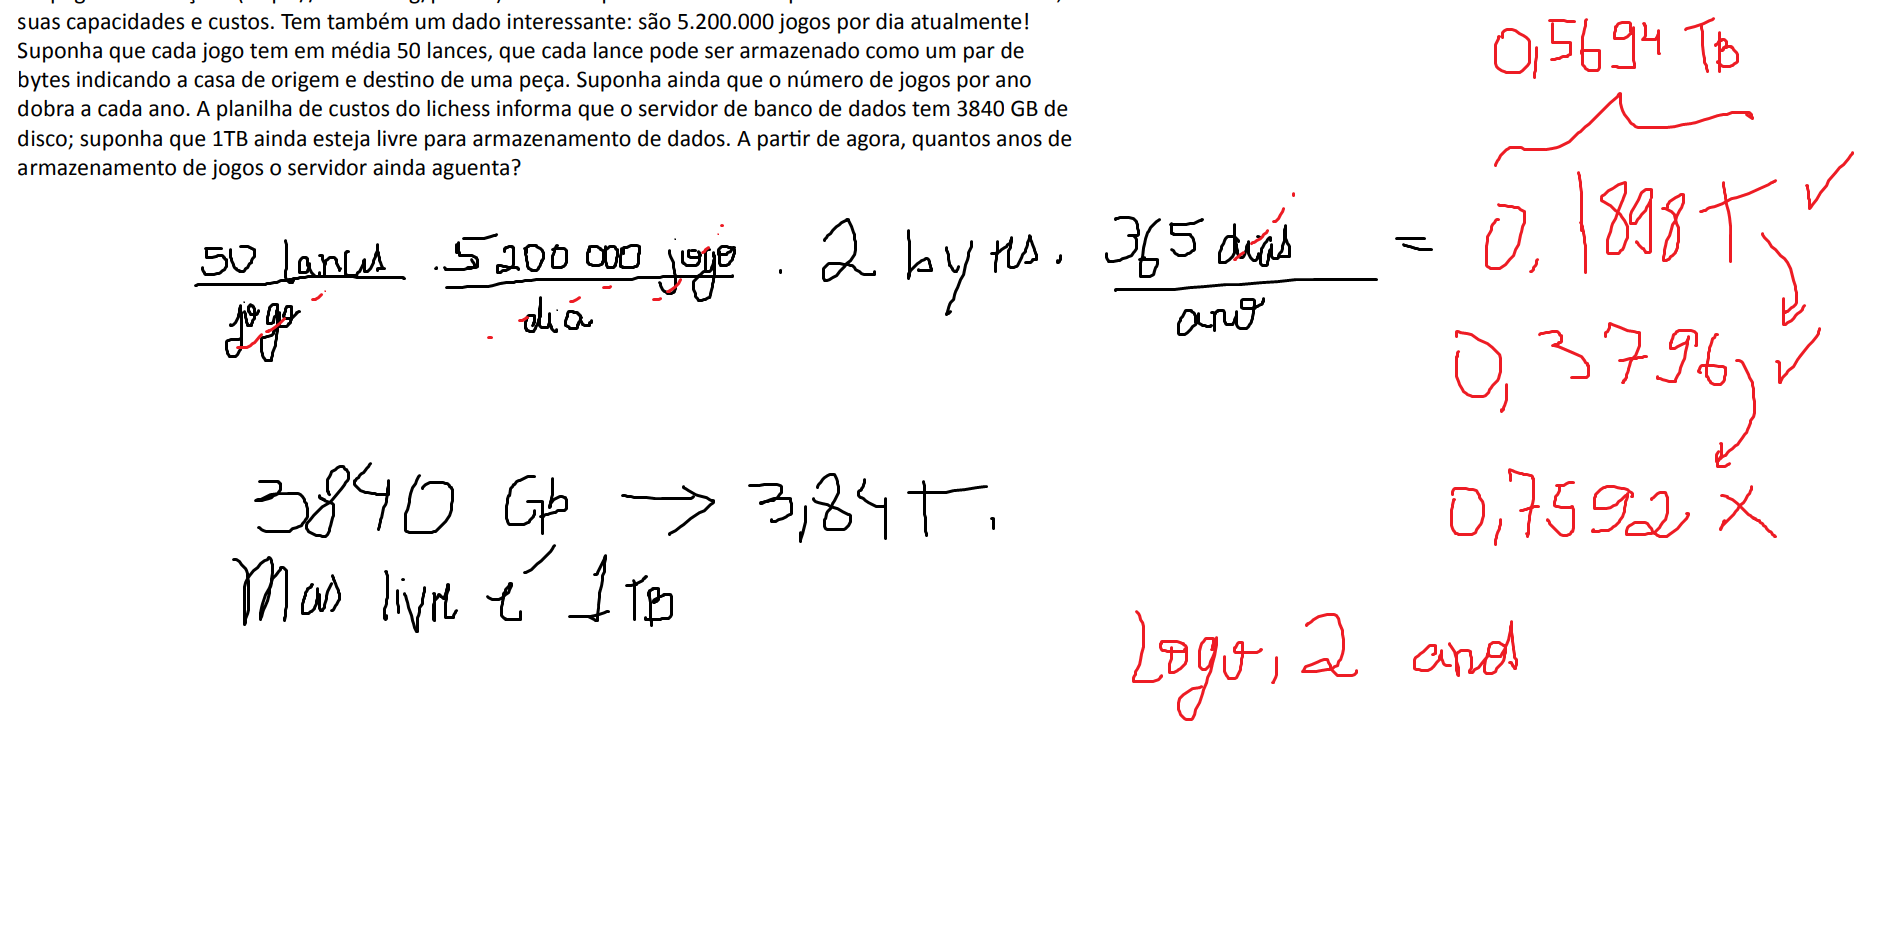 suas capacidades e custos. Tem também um dado interessante: são 5.200.000 jogos por dia atualmente!
Suponha que cada jogo tem em média 50 lances, que cada lance pode ser armazenado como um par de
bytes indicando a casa de origem e destino de uma peça. Suponha ainda que o número de jogos por ano
dobra a cada ano. A planilha de custos do lichess informa que o servidor de banco de dados tem 3840 GB de
disco; suponha que 1TB ainda esteja livre para armazenamento de dados. A partir de agora, quantos anos de
armazenamento de jogos o servidor ainda aguenta?
0,5694 TB
50 lances . 5 200 000 jogo . 2 bytes . 365 dias = 0,1898 T ✓
jogo dia ano
0,3796 ✓
3840 Gb → 3,84 T.
0,7592 X
Mas livre é 1 TB
Logo, 2 anos